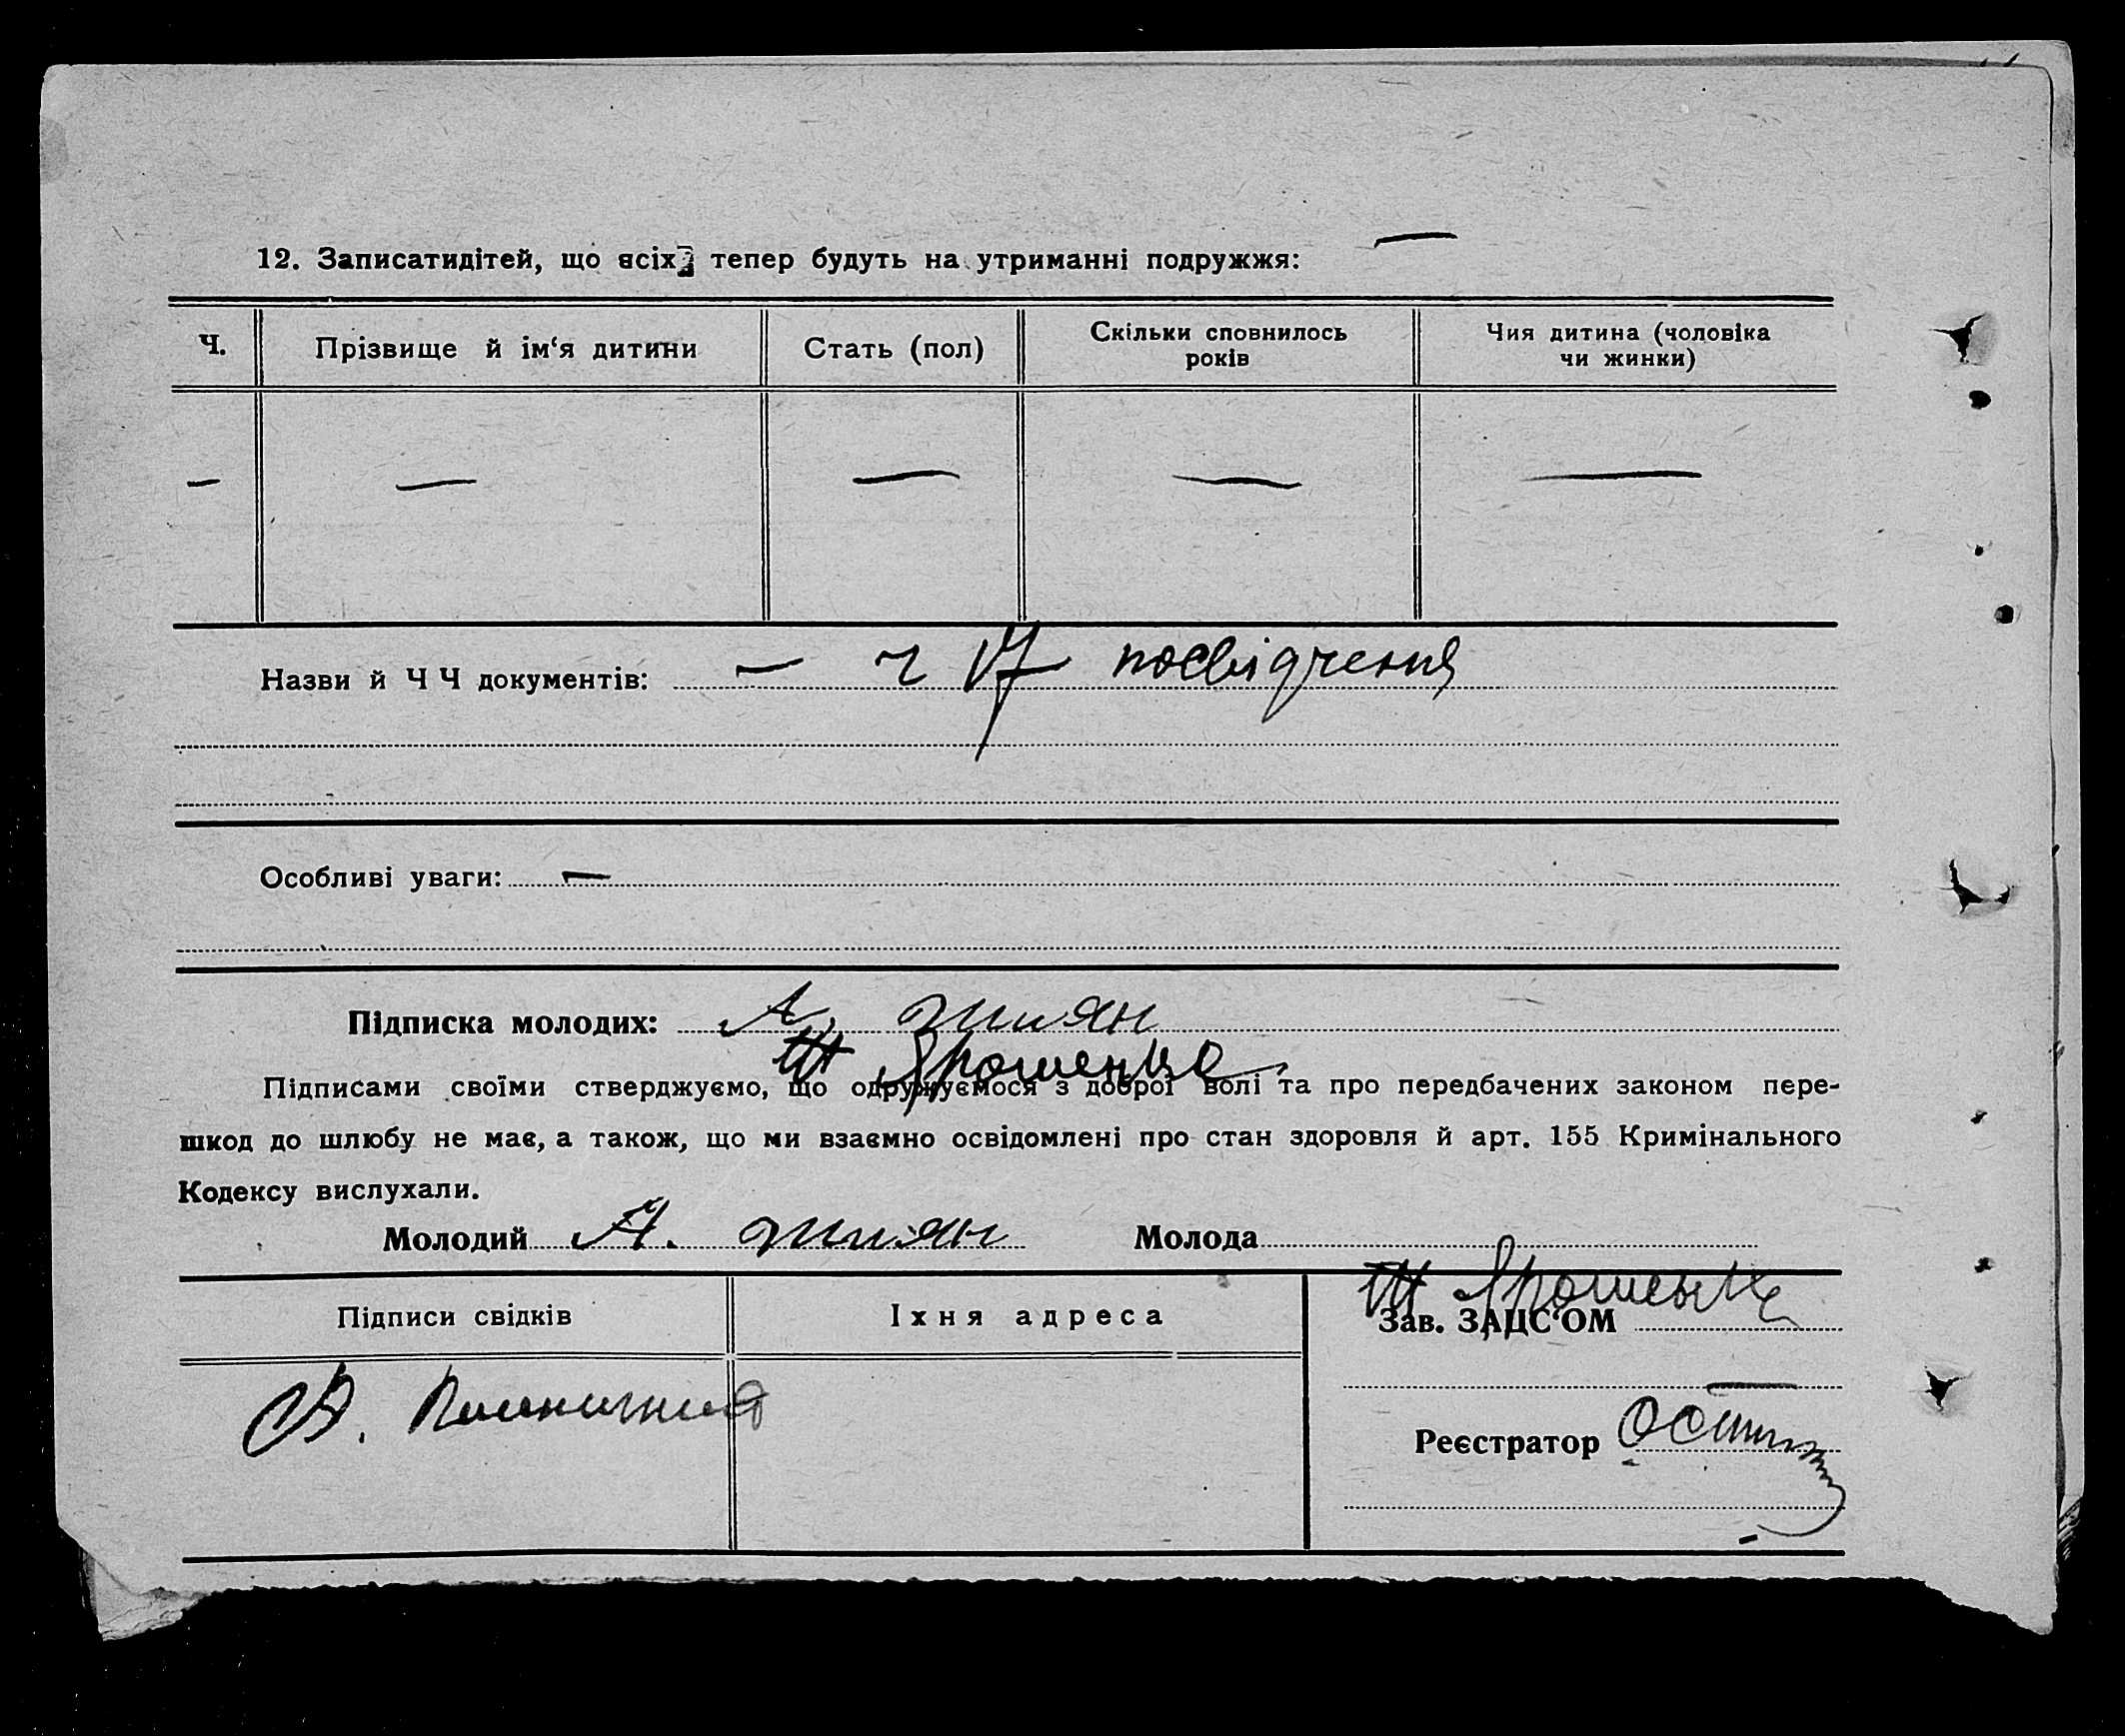 12. Записатидітей, що всіх тепер будуть на утриманні подружжя: —
Ч.
Прізвище й ім‘я дитини
Стать (пол)
Скільки сповнилось
років
Чия дитина (чоловіка
чи жинки)
— — — — —
Назви й Ч Ч документів: — ч 17 посвідчення
Особливі уваги: —
Підписка молодих: А. Шиян
Т Ярошенко
Підписами своїми стверджуємо, що одружуємося з доброї волі та про передбачених законом пере-
шкод до шлюбу не має, а також, що ми взаємно освідомлені про стан здоровля й арт. 155 Кримінального
Кодексу вислухали.
Молодий А. Шиян Молода
Т Ярошенко
Підписи свідків
Іхня адреса
Зав. ЗАЦС‘ОМ
—
В.
Реєстратор